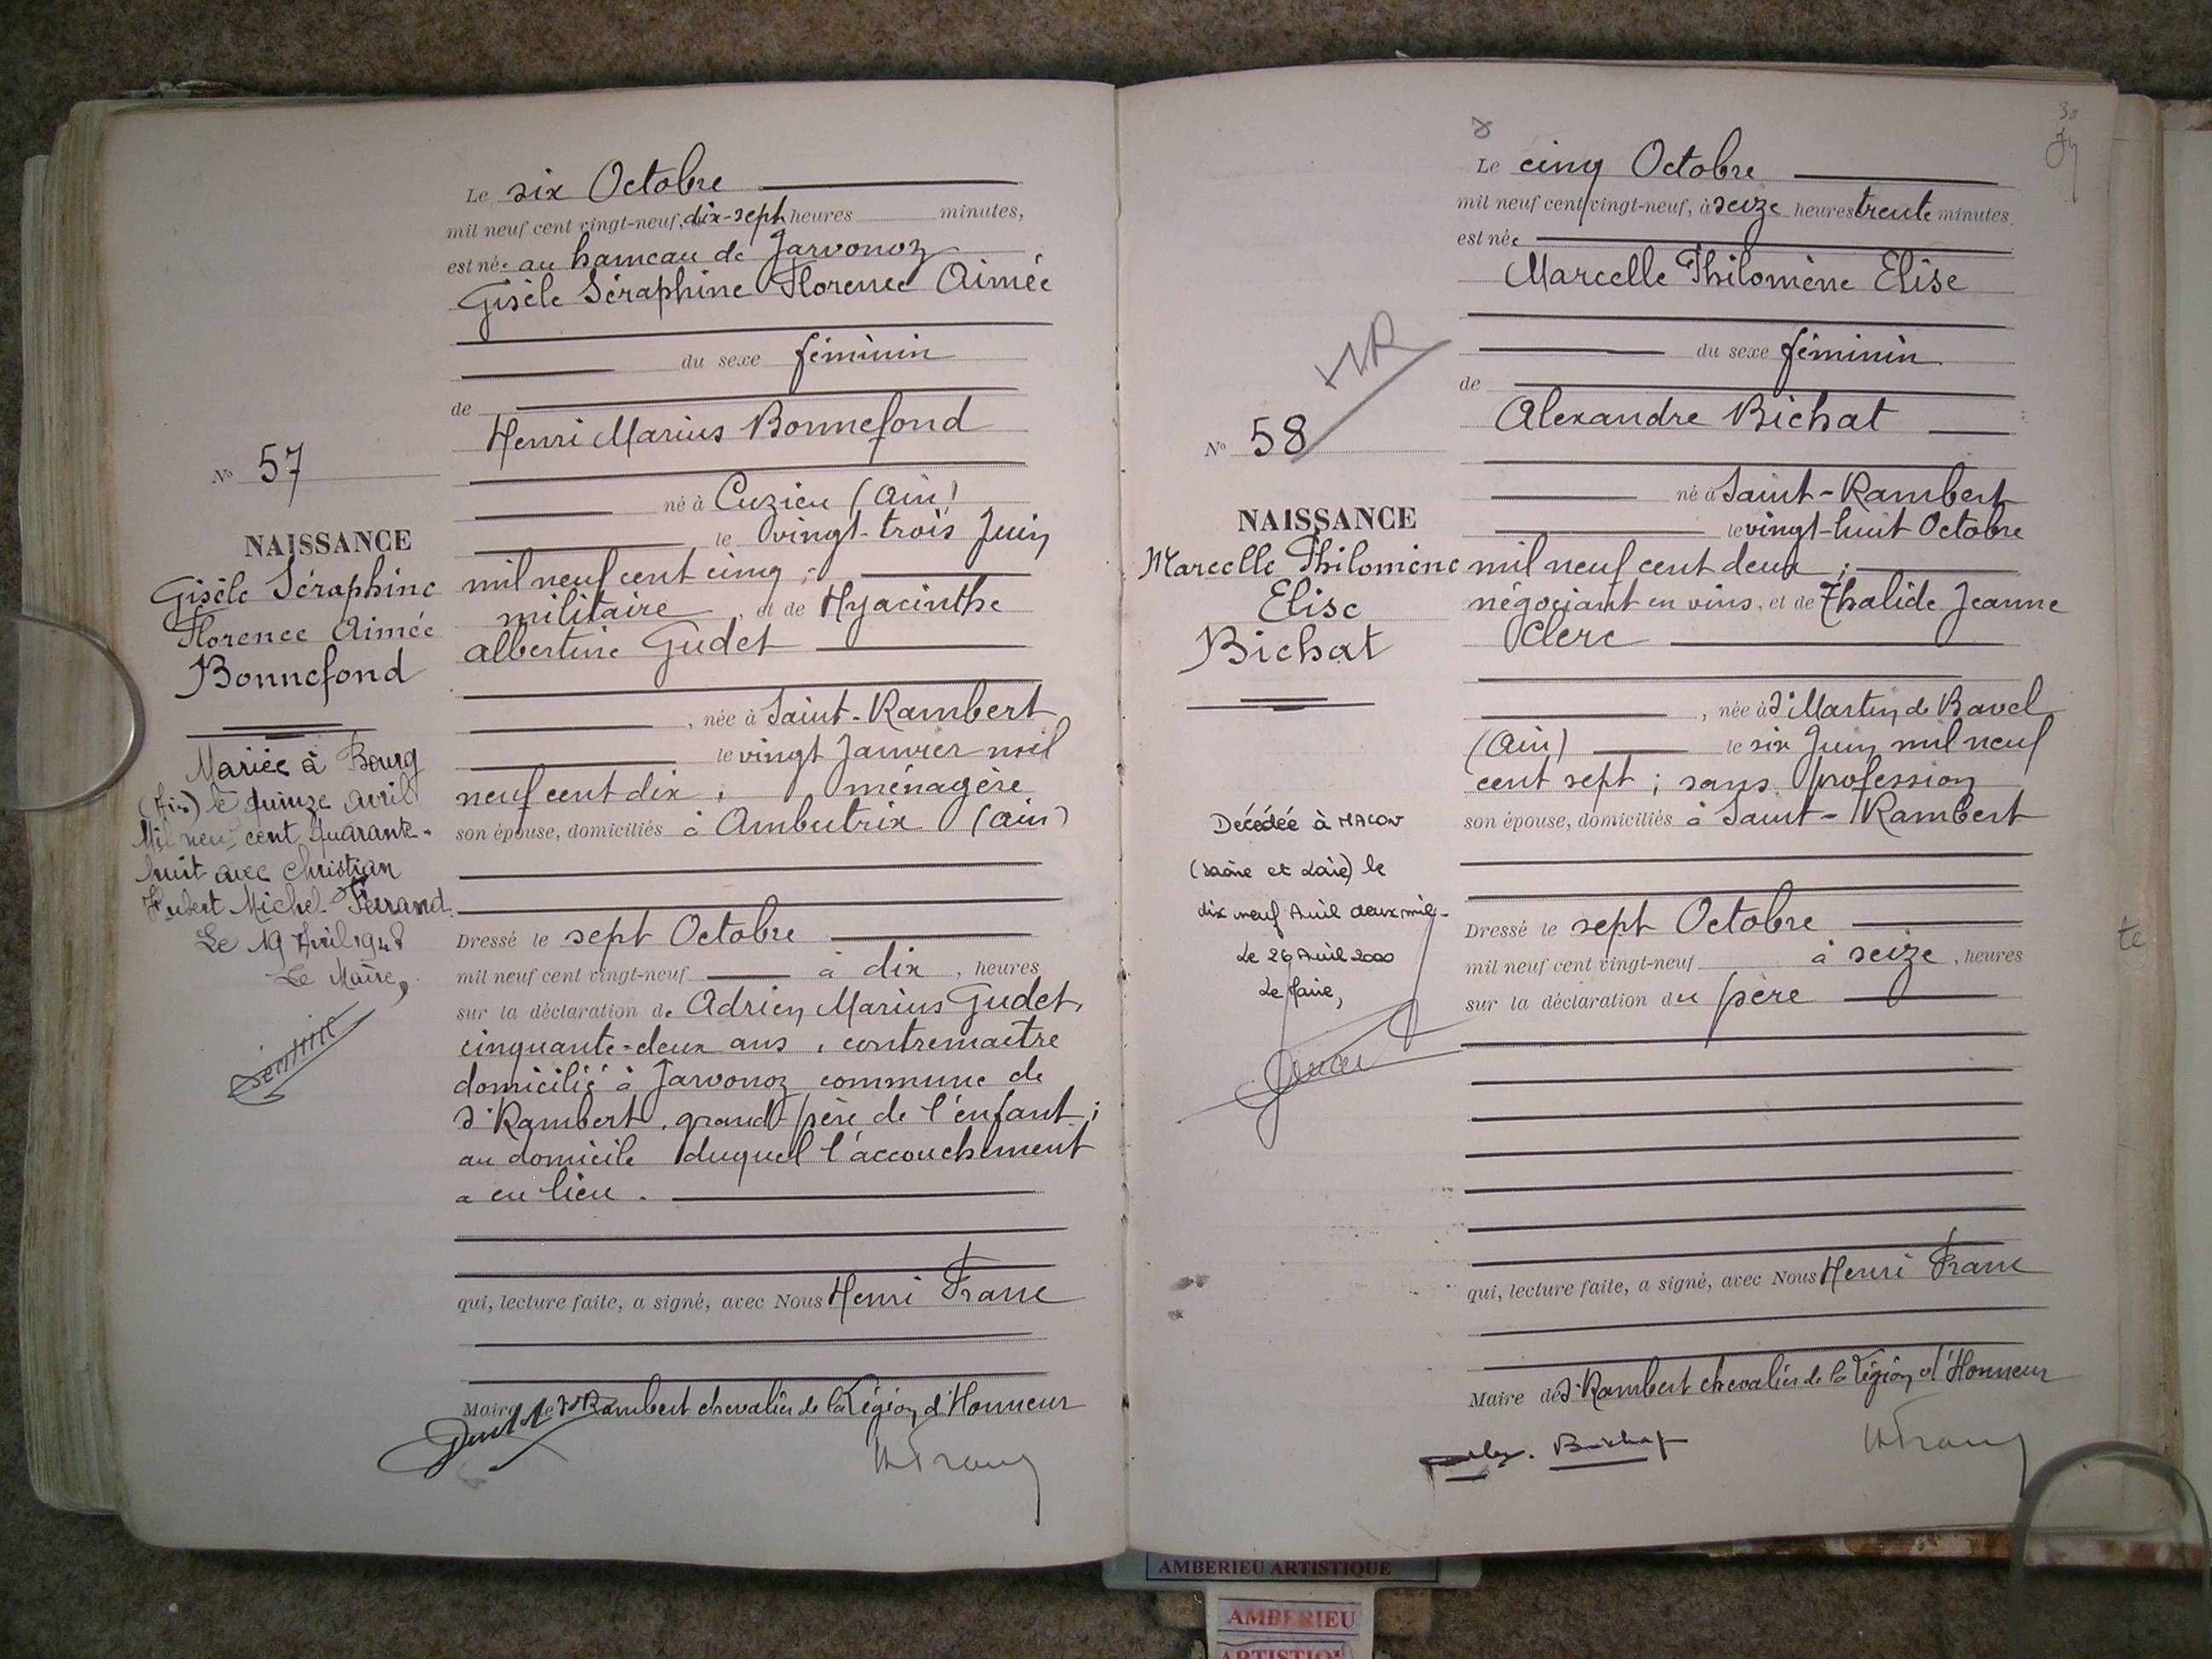 Le six Octobre
mil neuf cent vingt-neuf, dix-sept heures minutes,
est née au hameau de Javornoz
Gisèle Séraphine Florence Aimée
du sexe féminin
de
Henri Marius Bonnefond
né à Cuzieu (Ain)
le vingt-trois Juin
mil neuf cent cinq ;
militaire, et de Hyacinthe
Albertine Gudet
, née à Saint-Rambert
le vingt Janvier mil
neuf cent dix ; ménagère
son épouse, domiciliés à Ambutrix (Ain)
Dressé le sept Octobre
mil neuf cent vingt-neuf à dix, heures
sur la déclaration de Adrien Marius Gudet,
cinquante-deux ans, contremaitre
domicilié à Javornoz commune de
St Rambert, grand-père de l'enfant ;
au domicile duquel l'accouchement
a eu lieu.
qui, lecture faite, a signé, avec Nous Henri Franc
Maire de St Rambert chevalier de la Légion d'Honneur
HFranc
No 57
NAISSANCE
Gisèle Séraphine
Florence Aimée
Bonnefond
Mariée à Bourg
(Ain) le quinze avril
Mil neuf cent quarante-
huit avec Christian
Hubert Michel Ferrand
Le 19 Avril 1948
Le Maire,
Le cinq Octobre
mil neuf cent vingt-neuf, à seize heures trente minutes,
est née
Marcelle Philomène Elise
du sexe féminin
de
Alexandre Bichat
né à Saint-Rambert
le vingt-huit Octobre
mil neuf cent deux ;
négociant en vins, et de Thalide Jeanne
Clerc
, née à St Martin de Bavel
(Ain) le six Juin mil neuf
cent sept ; sans profession
son épouse, domiciliés à Saint-Rambert
Dressé le sept Octobre
mil neuf cent vingt-neuf à seize, heures
sur la déclaration du père
qui, lecture faite, a signé, avec Nous Henri Franc
Maire de St Rambert chevalier de la Légion d'Honneur
Alex. Bichat
HFranc
No 58
NAISSANCE
Marcelle Philomène
Elise
Bichat
Décédée à MACON
(Saône et Loire) le
dix neuf Avril deux mil-
Le 26 Avril 2000
Le Maire,
30
te
AMBERIEU ARTISTIQUE
AMBERIEU
ARTISTIQUE